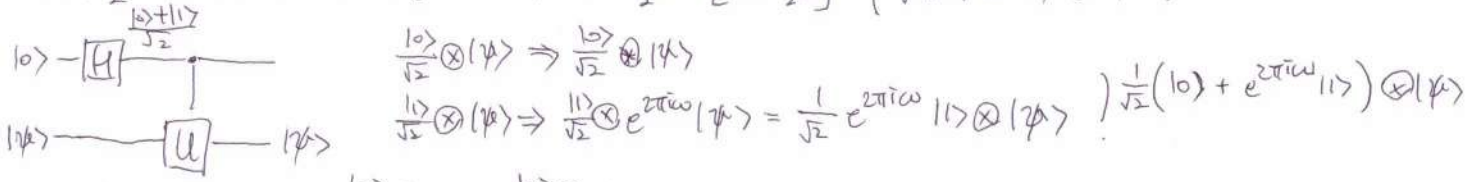 |0⟩+|1⟩/√2
|0⟩ H
|0⟩/√2 ⊗|ψ⟩ ⇒ |0⟩/√2 ⊗ |ψ⟩
|1⟩/√2 ⊗|ψ⟩ ⇒ |1⟩/√2 ⊗ e^{2πiω}|ψ⟩ = 1/√2 e^{2πiω} |1⟩⊗|ψ⟩ ) 1/√2 (|0⟩ + e^{2πiω}|1⟩) ⊗|ψ⟩
|ψ⟩ U |ψ⟩